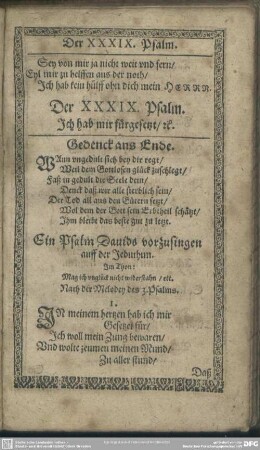 Der XXXIX. Psalm.
Sey von mir ja nicht weit vnd fern/
Eyl mir zu helffen aus der noth/
Ich hab kein hülff ohn dich mein HERR.
Der XXXIX. Psalm.
Ich hab mir fürgesetzt/ ꝛc.
Gedenck ans Ende.
WAnn vngedult sich bey dir regt/
Weil dem Gottlosen glück zuschlegt/
Faß in gedult die Seele dein/
Denck daß wir alle sterblich sein/
Der Tod all aus den Güttern setzt/
Wol dem der Gott sein Erbtheil schätzt/
Ihm bleibt das beste gut zu letzt.
Ein Psalm Dauids vorzusingen
auff der Jeduthun.
Im Thon:
Mag ich vnglück nicht widerstahn/ etc.
Nach der Melodey des 3. Psalms.
1.
IN meinem hertzen hab ich mir
Gesetzet für/
Ich woll mein Zung bewaren/
Vnd wolte zeumen meinen Mund/
Zu aller stund/
Daß